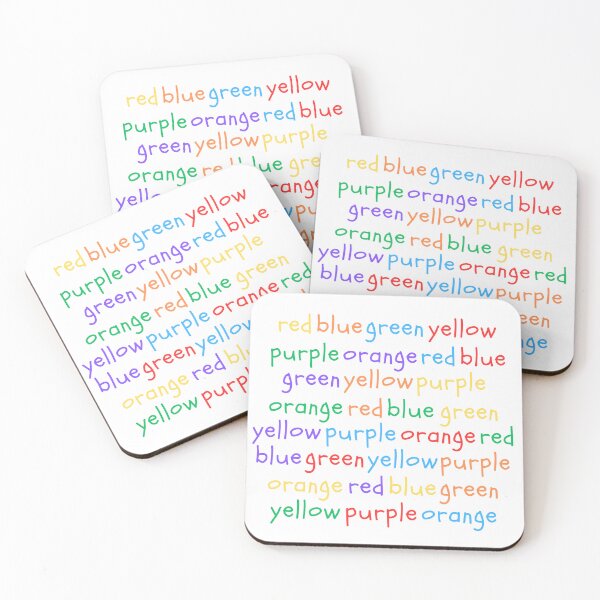 red blue green yellow
purple orange red blue
green yellow purple
orange red blue green
red blue green yellow
purple orange red blue
green yellow purple
orange red blue green
yellow purple orange red
blue green yellow purple
red blue green yellow
purple orange red blue
green yellow purple
orange red blue green
yellow purple orange red
blue green yellow
orange red
yellow purple
red blue green yellow
purple orange red blue
green yellow purple
orange red blue green
yellow purple orange red
blue green yellow purple
orange red blue green
yellow purple orange